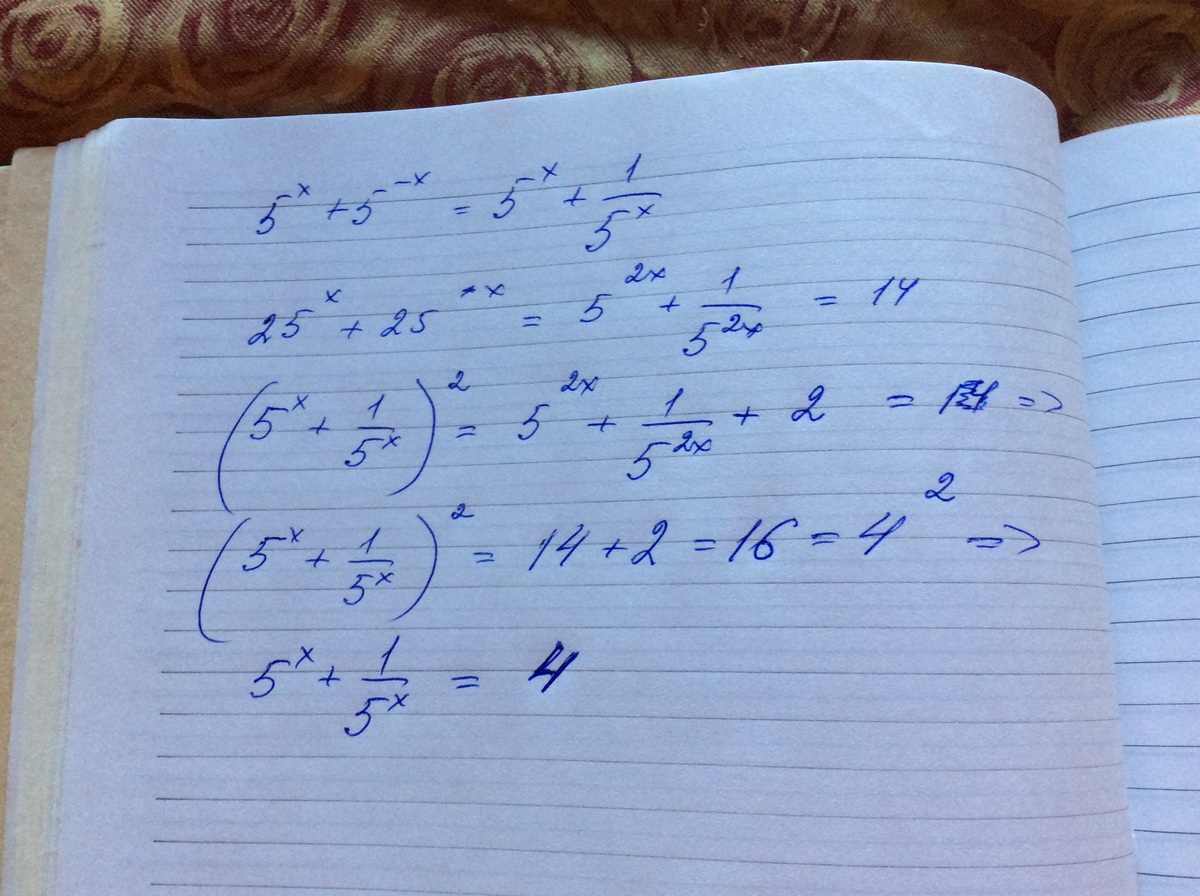 5^x + 5^-x = 5^x + 1/5^x
25^x + 25^-x = 5^2x + 1/5^2x = 14
(5^x + 1/5^x)^2 = 5^2x + 1/5^2x + 2 = =>
(5^x + 1/5^x)^2 = 14 + 2 = 16 = 4^2 =>
5^x + 1/5^x = 4